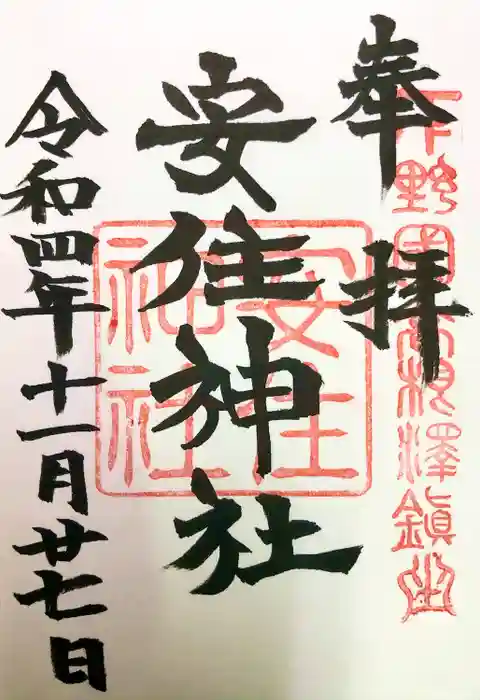 下野國高根澤鎮坐
奉拝
安住神社
安住
神社
令和四年十一月廿七日